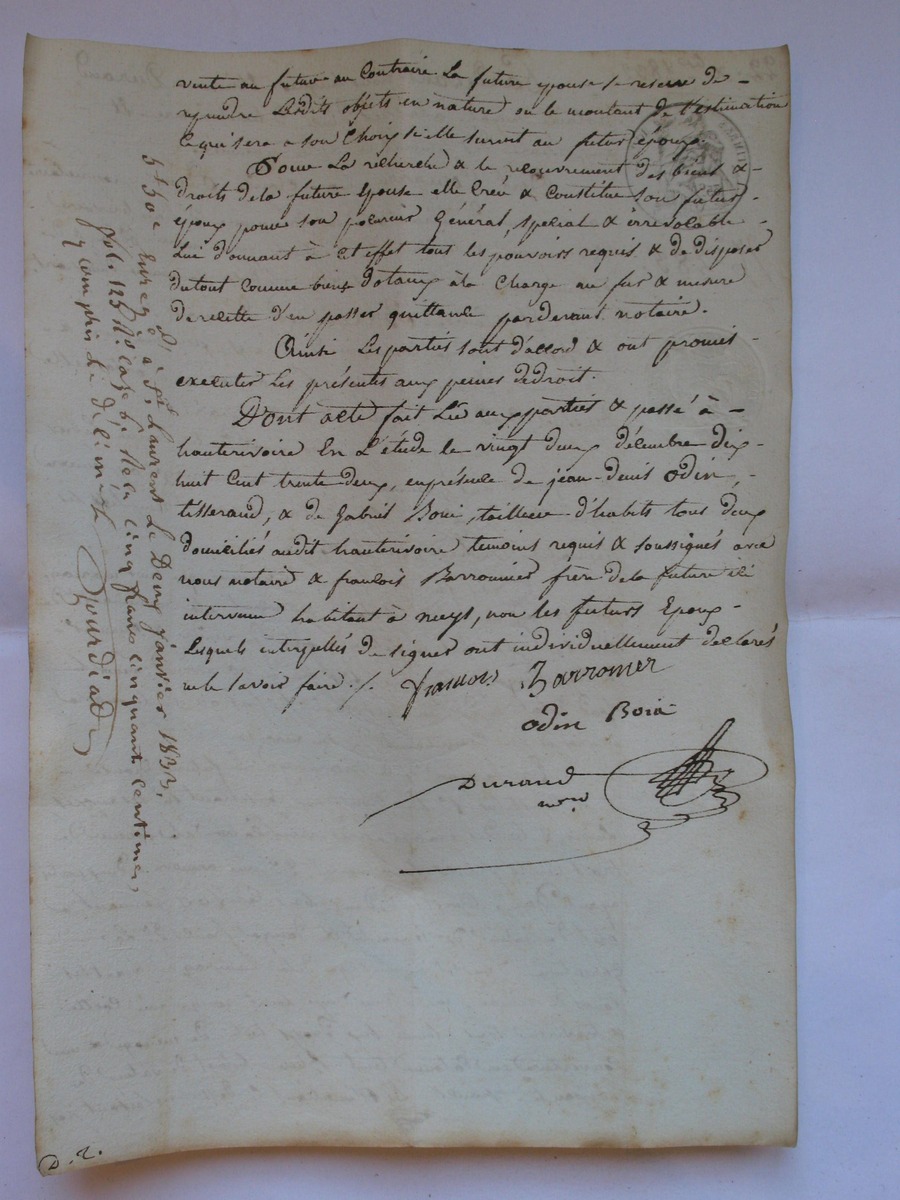 vente au futur au Contraire La future epouse se reserve de -
reprendre Lesdits objets en nature ou le montant de l'estimation
ce qui sera a son Choix si elle survit au futur époux.
Pour La recherche & le recouvrement des biens &
droits de la future Epouse elle Crée & Constitue son futur
époux pour son procureur Général, special & irrevocable
Lui donnant à cet effet tout les pouvoirs requis & de disposer
du tout Comme biens dotaux à la Charge au fur & mesure
de recette d'en passer quittance pardevant notaire.
Ainsi Les parties sont d'accord & ont promis
executer Les présentes aux peines de droit.
Dont acte fait Lu aux parties & passé à -
hauterivoire En L'étude le vingt deux décembre dix-
huit Cent trente deux, en présence de jean-denis Odin,
tisserand, & de Gabriel Boui, tailleur d'habits tous deux
domiciliés audit hauterivoire temoins requis & soussignés avec
nous notaire & francois Barronnier frere de la future ici
intervenu habitant à , non les futurs Epoux -
Lesquels interpellés de signer ont individuellement declarés
ne le savoir faire ./.
francois Barronier
Odin Boui
Durand
nre
5f 50c Enreg. à St Laurent Le Deux janvier 1833,
fol. 125 Ro case 6, Recu cinq francs cinquante centimes,
y compris Le dixième
D. N.